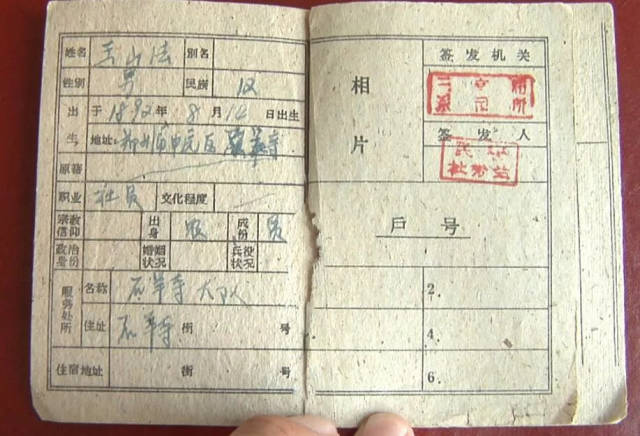 姓名 王山法 别名
性别 男 民族 汉
出生 于1892年8月12日出生
地址: 郑州市中原区
原籍
职业 社员 文化程度
宗教信仰 出身 农 成份 员
政治身份 婚姻状况 兵役状况
服务处所 名称 石羊寺大队
住址 石羊寺 街 号
住宿地址 街 号
相片
签发机关
签发人
户号
2.
4.
6.